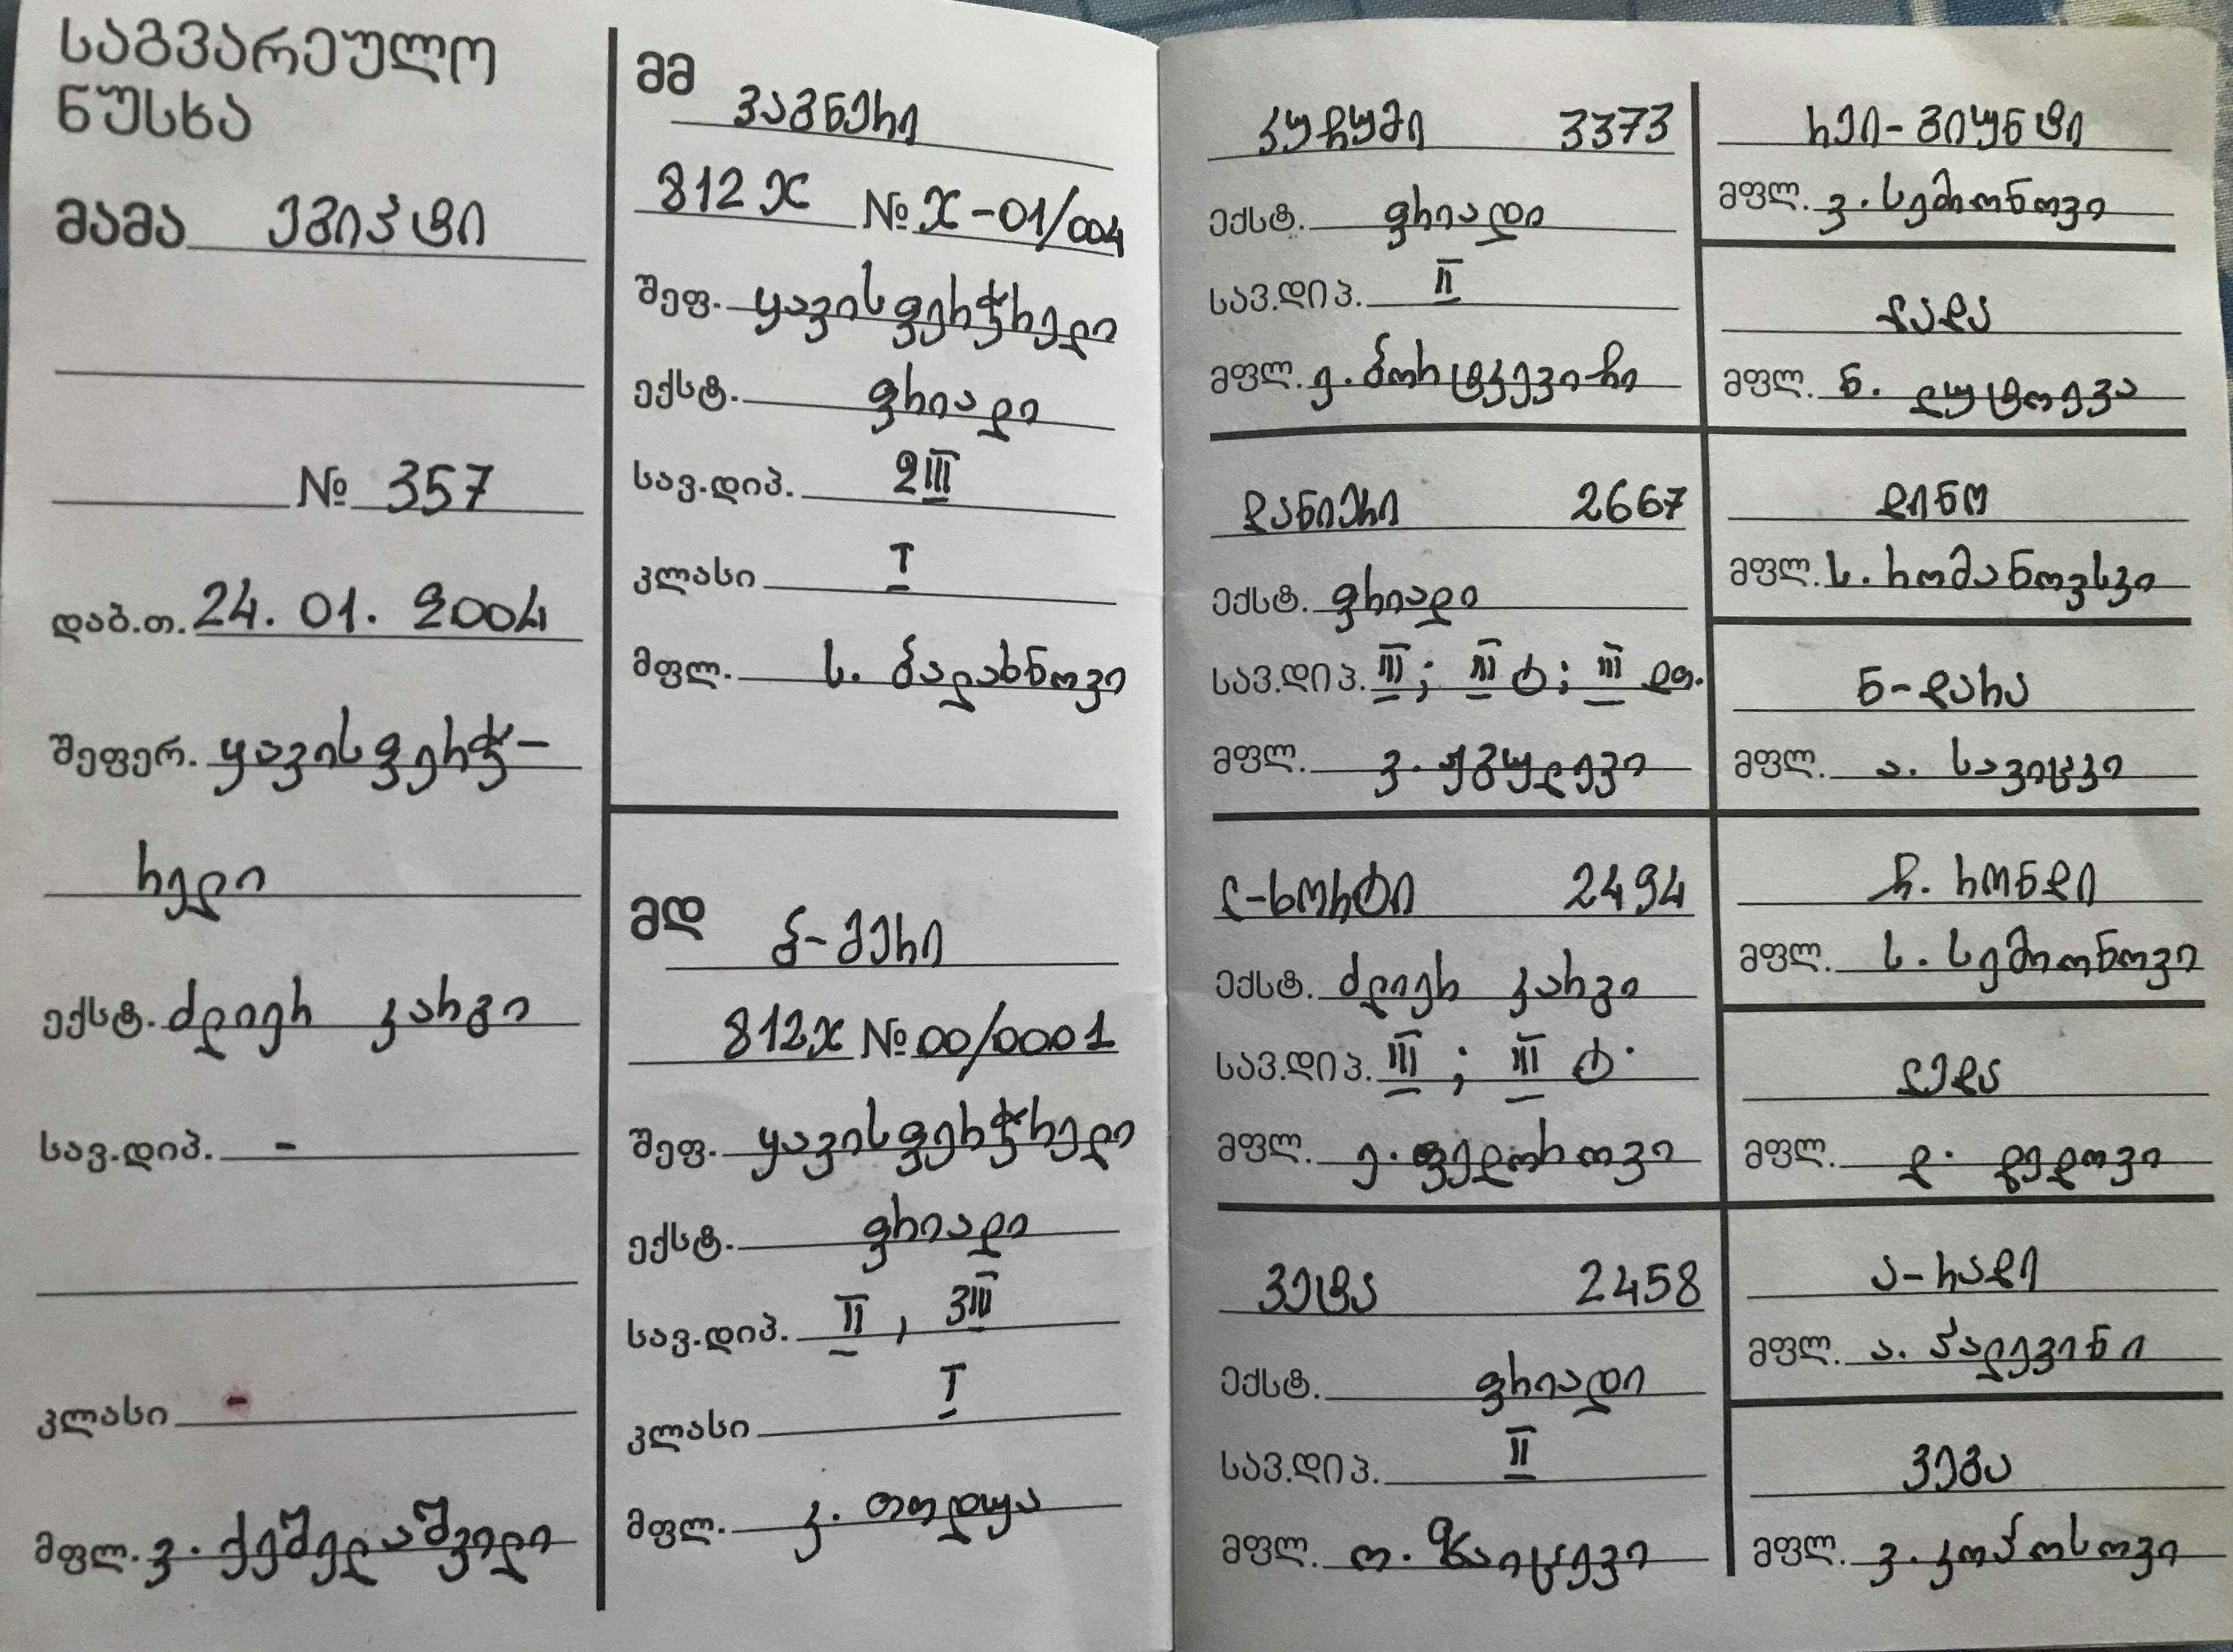 საგვარეულო
ნუსხა
მამა ეგიპტი
№ 357
დაბ.თ. 24. 01. 2004
შეფერ. ყავისფერჭ-
რელი
ექსტ. ძლიერ კარგი
სავ.დიპ. -
კლასი -
მფლ. ვ. ქეშელაშვილი
მმ ვაგნერი
812 X № X-01/004
შეფ. ყავისფერჭრელი
ექსტ. ფრიადი
სავ.დიპ. 2III
კლასი I
მფლ. ს. ბალახნოვი
მდ ბ-მერი
812X № 00/0001
შეფ. ყავისფერჭრელი
ექსტ. ფრიადი
სავ.დიპ. II , 3III
კლასი I
მფლ. კ. თოდუა
კურუმი 3373
ექსტ. ფრიადი
სავ.დიპ. II
მფლ. ე. ბორტკევიჩი
დანიერი 2667
ექსტ. ფრიადი
სავ.დიპ. III ; III ტ ; III დლ.
მფლ. ვ. ჟგულევი
ლ-ხორტი 2494
ექსტ. ძლიერ კარგი
სავ.დიპ. III ; III ტ.
მფლ. ე. ფედოროვი
ვეტა 2458
ექსტ. ფრიადი
სავ.დიპ. II
მფლ. ო. ზაიცევი
რეი-გიუნტი
მფლ. ვ. სემიონოვი
დადა
მფლ. ნ. ლუტოევა
დინო
მფლ. ს. რომანოვსკი
ნ-დარა
მფლ. ა. სავიცკი
ჩ. რონდი
მფლ. ს. სემიონოვი
ლედა
მფლ. დ. დედოვი
ა-რადი
მფლ. ა. პალევინი
ვეგა
მფლ. ვ. კოპოსოვი